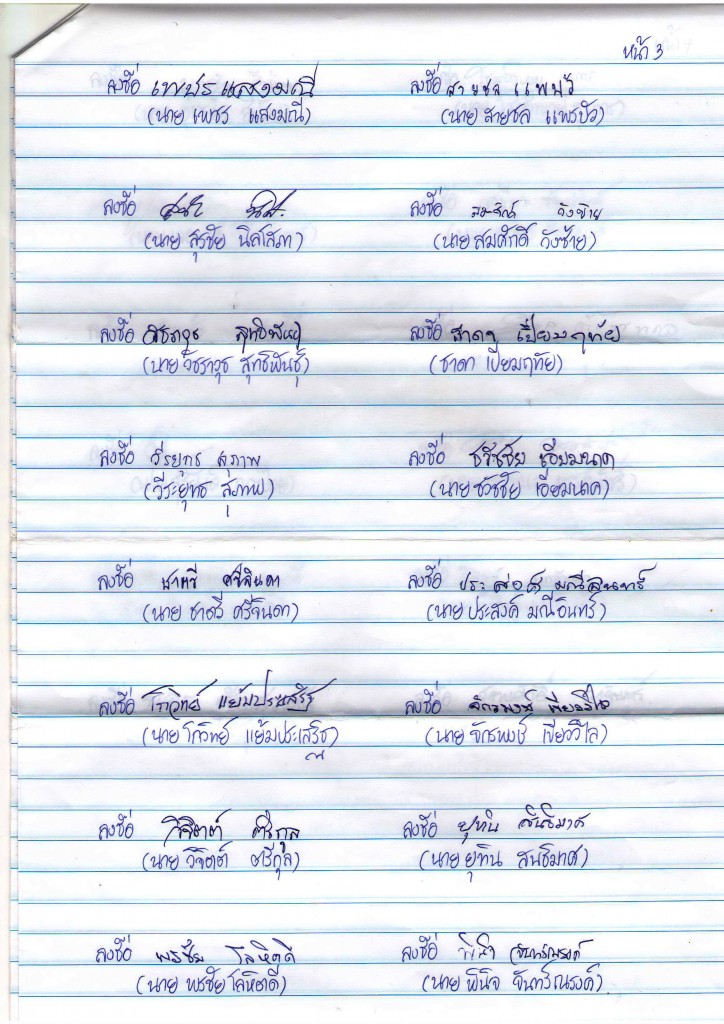 หน้า 3
ลงชื่อ เพชร แสงมณี ลงชื่อ สายชล แพรบัว
(นาย เพชร แสงมณี) (นาย สายชล แพรบัว)
ลงชื่อ ลงชื่อ สมศักดิ์ วังซ้าย
(นาย สุรชัย นิลโสภา) (นาย สมศักดิ์ วังซ้าย)
ลงชื่อ วัชราวุธ สุทธิพันธุ์ ลงชื่อ ชาดา เปี่ยมฤทัย
(นาย วัชราวุธ สุทธิพันธุ์) (ชาดา เปี่ยมฤทัย)
ลงชื่อ วีรยุทธ สุภาพ ลงชื่อ ชวัชชัย เอี่ยมนาค
(วีระยุทธ สุภาพ) (นาย ชวัชชัย เอี่ยมนาค)
ลงชื่อ ชาตรี ศรีจินดา ลงชื่อ ประสงค์ มณีอินทร์
(นาย ชาตรี ศรีจินดา) (นาย ประสงค์ มณีอินทร์)
ลงชื่อ โกวิทย์ แย้มประเสริฐ ลงชื่อ จักรพงษ์ เขียววิไล
(นาย โกวิทย์ แย้มประเสริฐ) (นาย จักรพงษ์ เขียววิไล)
ลงชื่อ วิจิตต์ ตรีกุล ลงชื่อ ยุทิน สนธิมาศ
(นาย วิจิตต์ ตรีกุล) (นาย ยุทิน สนธิมาศ)
ลงชื่อ พรชัย โลหิตดี ลงชื่อ พินิจ จันทร์ณรงค์
(นาย พรชัย โลหิตดี) (นาย พินิจ จันทร์ณรงค์)